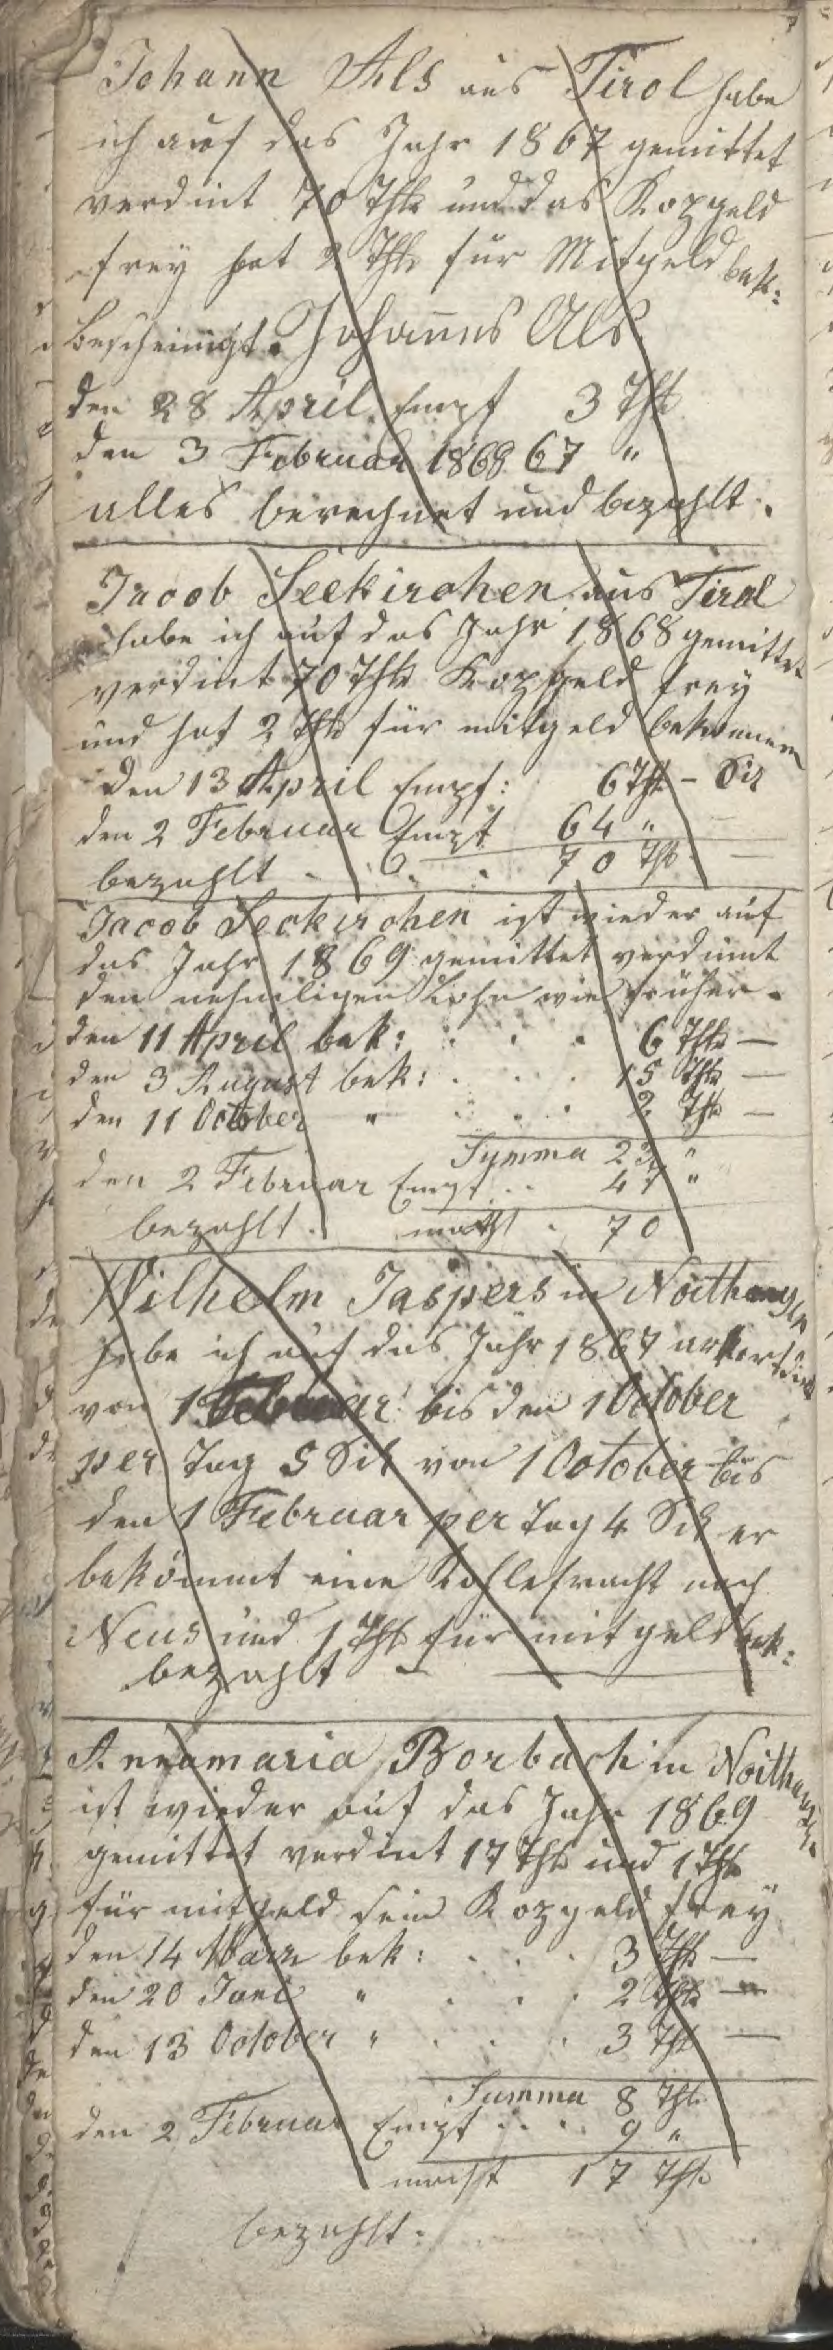 Johann Als aus Tirol habe
ich auf das Jahr 1867 gemittet
verdint 70 Thlr und das Kopgeld
frey hat 2 Thlr für Mitgeld bek:
bescheinigt. Johannes Als
den 28 April Empf 3 Thlr
den 3 Februar 1868 67 "
alles berechnet und bezahlt.
Jacob Seekirchen aus Tirol
habe ich auf das Jahr 1868 gemittet
verdint 70 Thlr Kopgeld frey
und hat 2 Thlr für mitgeld bekommen
den 13 April Empf: 6 Thlr – Sil
den 2 Februar Empf 64 "
bezahlt . . . 70 Thlr –
Jacob Seekirchen ist wieder auf
das Jahr 1869 gemittet verdinnt
den nehmligen Lohn wie früher.
den 11 April bek: . . . 6 Thlr –
den 3 August bek: . . . 15 Thlr –
den 11 October " . . . 2 Thlr –
Summa 23 "
den 2 Februar Empf . . 47 "
bezahlt. macht . 70
Wilhelm Jaspers in Noithausen
habe ich auf das Jahr 1867 ackordirt
von 1 Februar bis den 1 October
per Tag 5 Sil von 1 October bis
den 1 Februar per Tag 4 Sil er
bekömmt eine Kohlefracht nach
Neus und 1 Thlr für mitgeld bek:
bezahlt –
Annamaria Borbach in Noithausen
ist wieder auf das Jahr 1869
gemittet verdint 17 Thlr und 1 Thlr
für mitgeld sein Kopgeld frey
den 14 März bek: . . . 3 Thlr –
den 20 Juni " . . . 2 Thlr –
den 13 October " . . . 3 Thlr –
Summa 8 Thlr
den 2 Februar Empf . . . 9 "
macht 17 Thlr
bezahlt: